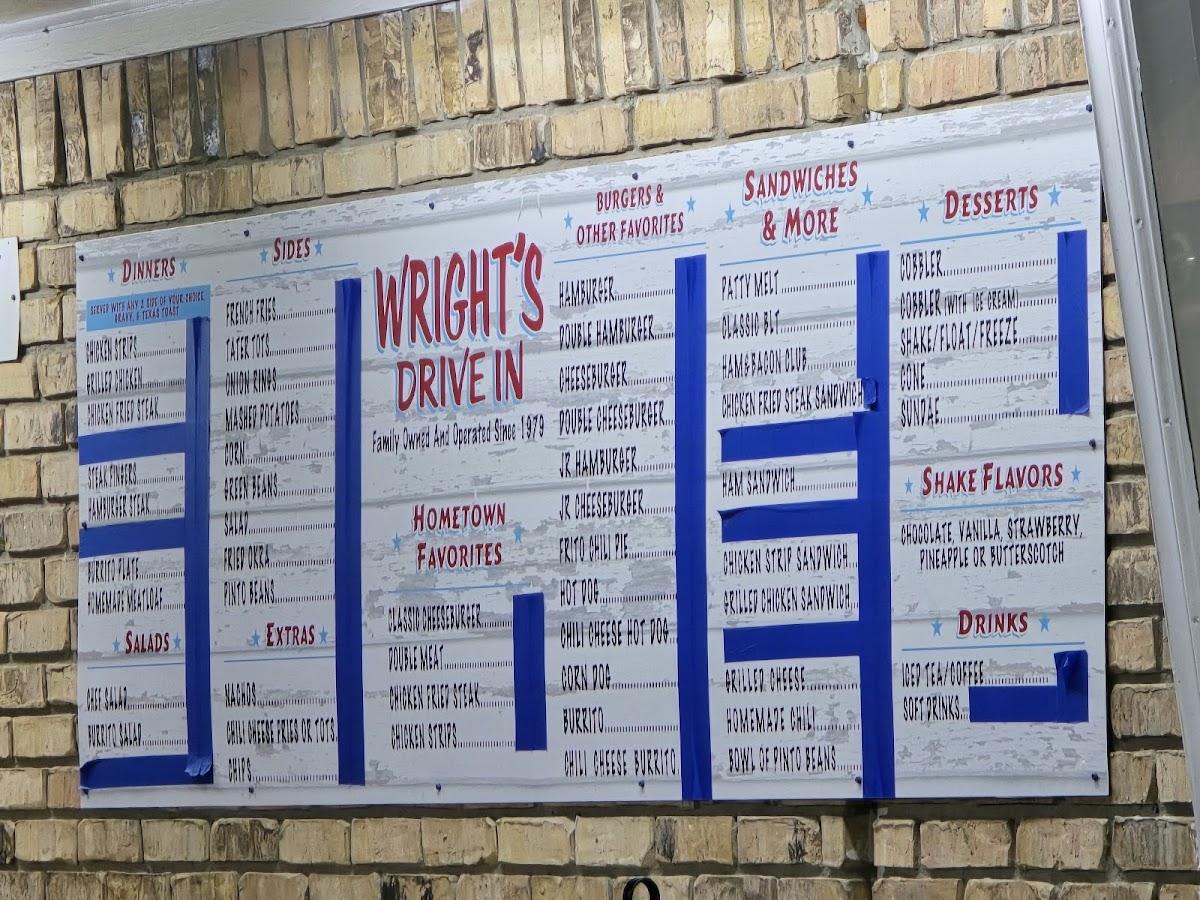 DINNERS
SERVED WITH ANY 2 SIDE OF YOUR CHOICE,
GRAVY, & TEXAS TOAST
CHICKEN STRIPS
GRILLED CHICKEN
CHICKEN FRIED STEAK
STEAK FINGERS
HAMBURGER STEAK
BURRITO PLATE
HOMEMADE MEATLOAF
SALADS
CHEF SALAD
BURRITO SALAD
SIDES
FRENCH FRIES
TATER TOTS
ONION RINGS
MASHED POTATOES
CORN
GREEN BEANS
SALAD
FRIED OKRA
PINTO BEANS
EXTRAS
NACHOS
CHILI CHEESE FRIES OR TOTS
CHIPS
WRIGHT'S
DRIVE IN
Family Owned And Operated Since 1979
HOMETOWN
FAVORITES
CLASSIC CHEESEBURGER
DOUBLE MEAT
CHICKEN FRIED STEAK
CHICKEN STRIPS
BURGERS &
OTHER FAVORITES
HAMBURGER
DOUBLE HAMBURGER
CHEESEBURGER
DOUBLE CHEESEBURGER
JR HAMBURGER
JR CHEESEBURGER
FRITO CHILI PIE
HOT DOG
CHILI CHEESE HOT DOG
CORN DOG
BURRITO
CHILI CHEESE BURRITO
SANDWICHES
& MORE
PATTY MELT
CLASSIC BLT
HAM&BACON CLUB
CHICKEN FRIED STEAK SANDWICH
HAM SANDWICH
CHICKEN STRIP SANDWICH
GRILLED CHICKEN SANDWICH
GRILLED CHEESE
HOMEMADE CHILI
BOWL OF PINTO BEANS
DESSERTS
COBBLER
COBBLER (WITH ICE CREAM)
SHAKE/FLOAT/FREEZE
CONE
SUNDAE
SHAKE FLAVORS
CHOCOLATE, VANILLA, STRAWBERRY,
PINEAPPLE OR BUTTERSCOTCH
DRINKS
ICED TEA/COFFEE
SOFT DRINKS